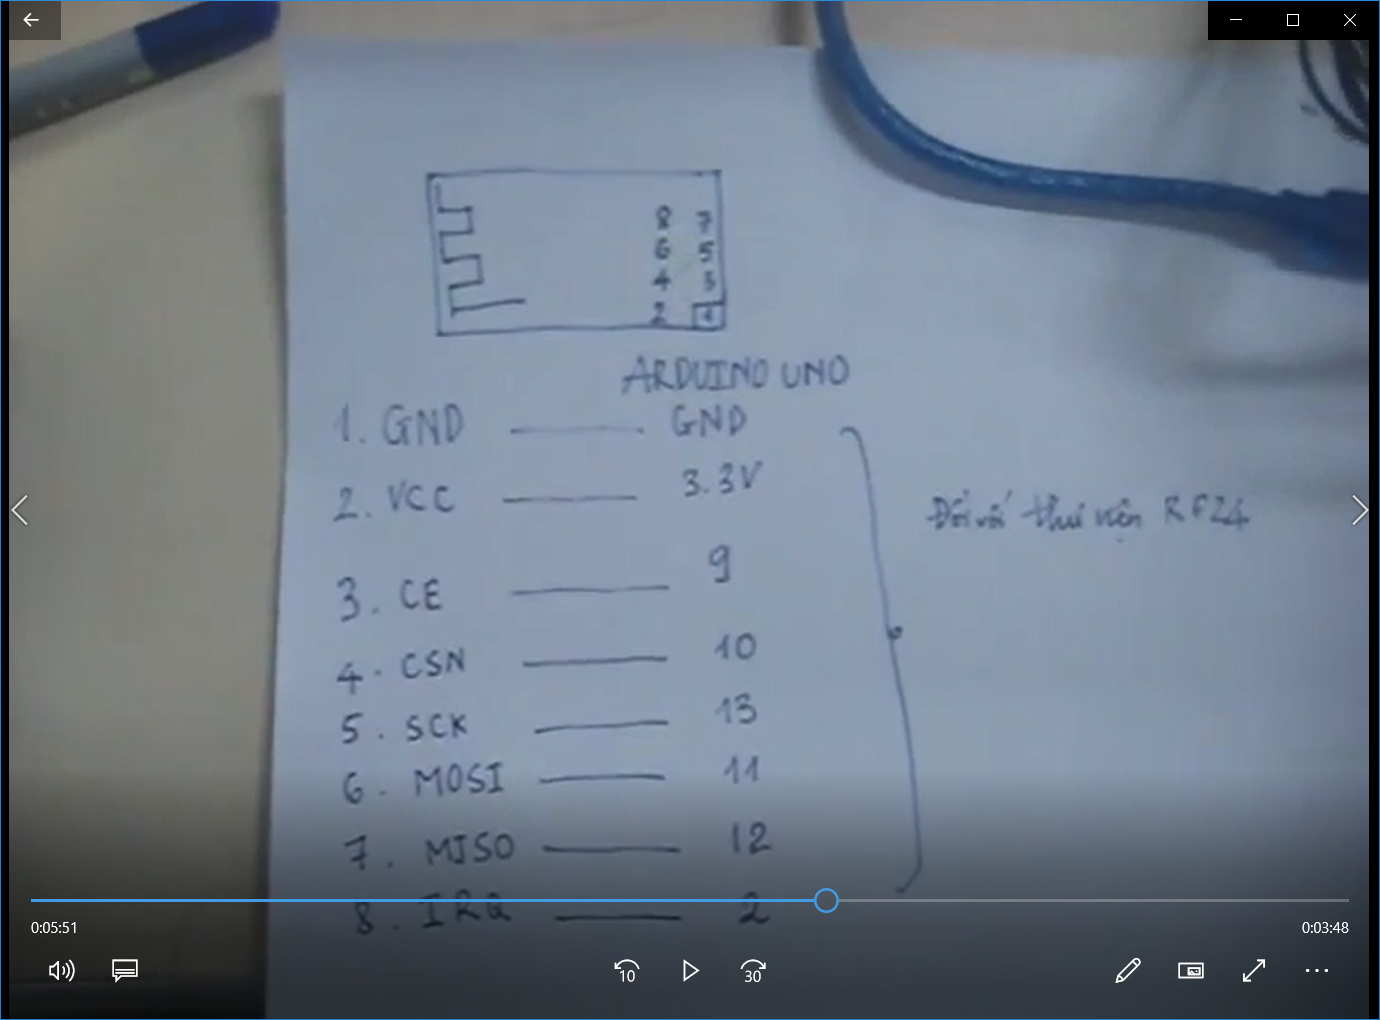 8 7
6 5
4 3
2 1
ARDUINO UNO
1. GND — GND
2. VCC — 3.3V
3. CE — 9
4. CSN — 10
5. SCK — 13
6. MOSI — 11
7. MISO — 12
8. IRQ — 2
Đối với thư viện RF24
0:05:51
0:03:48
10
30